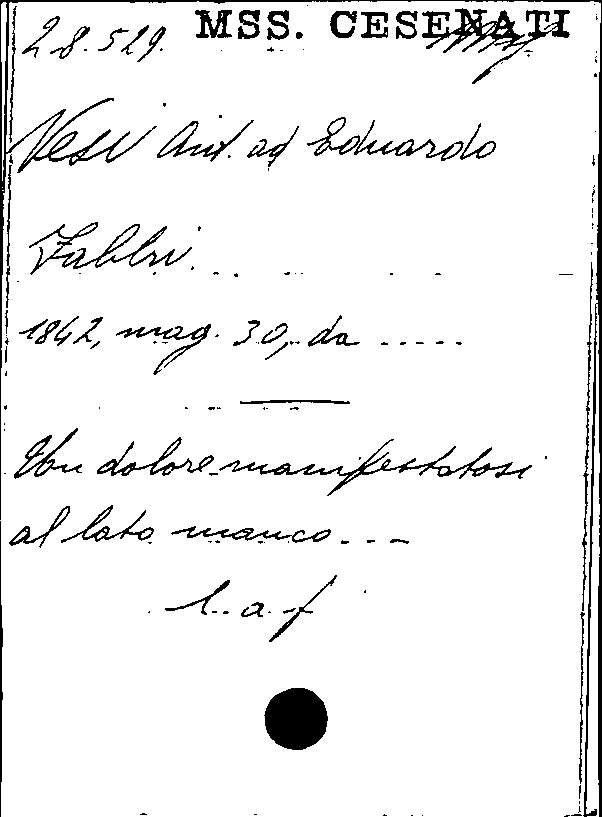 28.529. MSS. CESENATI
Vesi Ant. ad Eduardo
Fabbri.
1842, mag. 30, da .....
Un dolore manifestatosi
al lato manco...
l. a. f